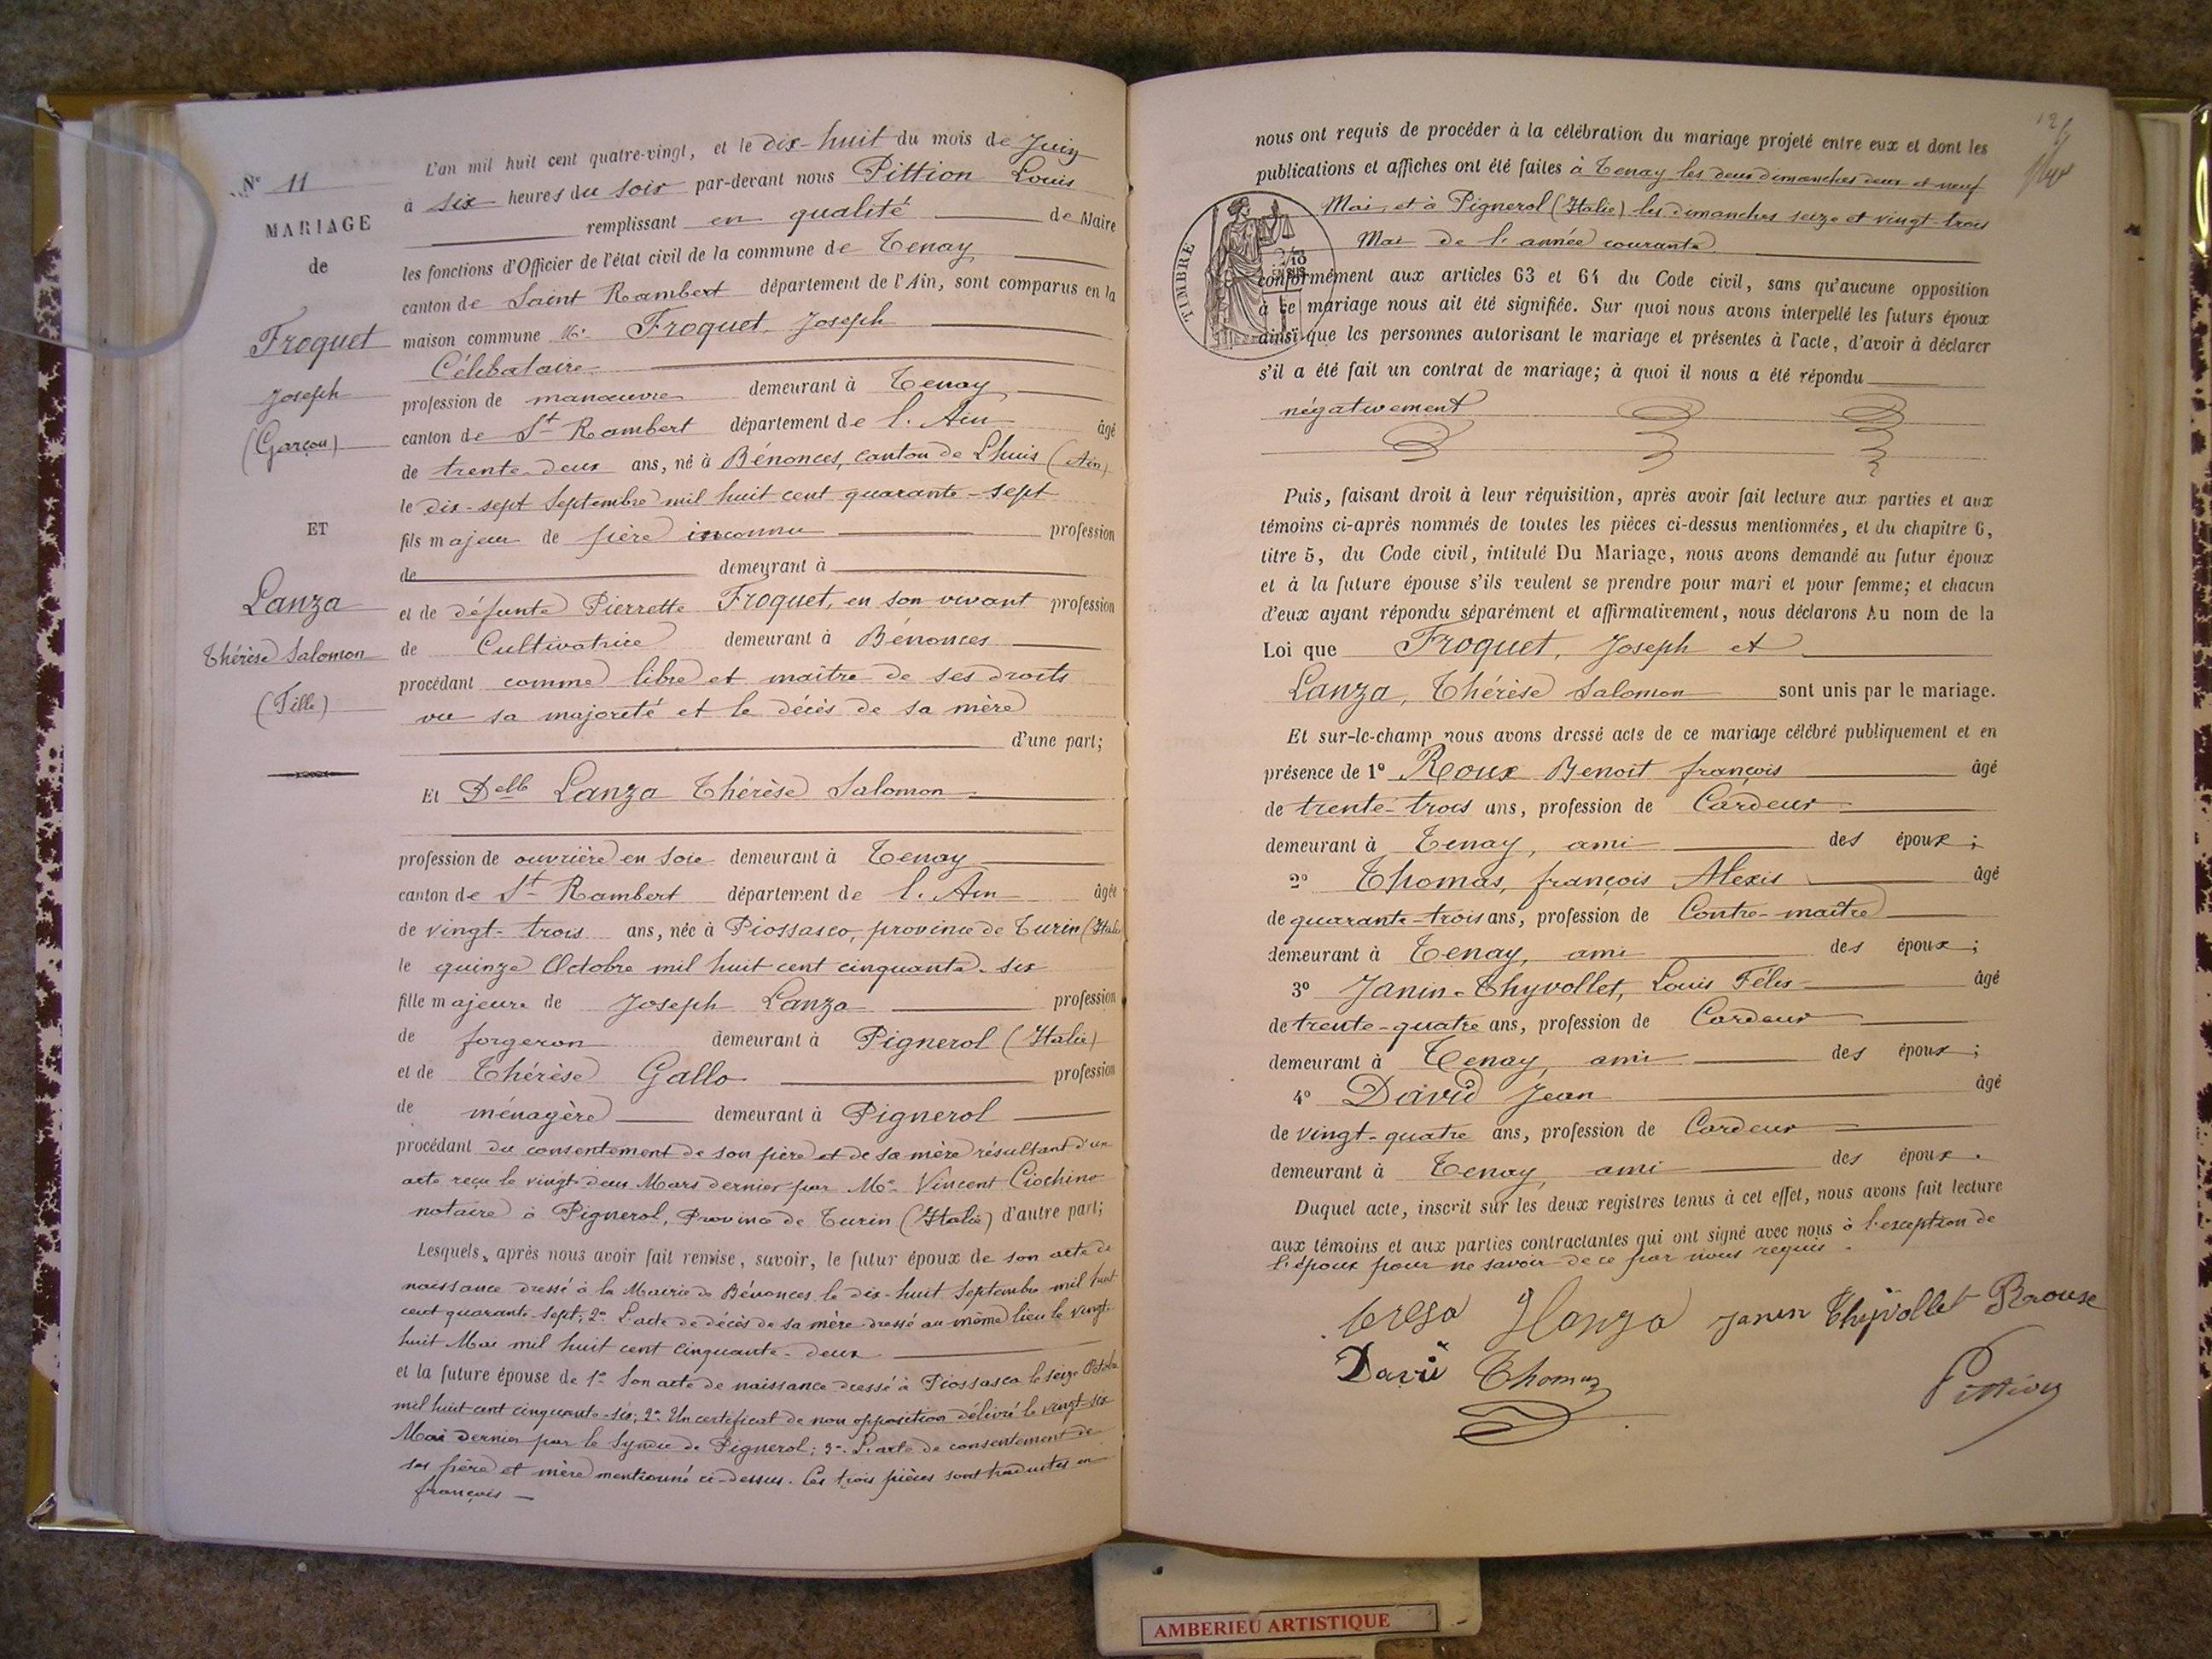 N° 11
MARIAGE
de
Froquet
Joseph
(Garçon)
ET
Lanza
Thérèse Salomon
(Fille)
L'an mil huit cent quatre-vingt, et le dix-huit du mois de Juin
à six heures du soir par-devant nous Pittion Louis
remplissant en qualité de Maire
les fonctions d'Officier de l'état civil de la commune de Tenay
canton de Saint Rambert département de l'Ain, sont comparus en la
maison commune Mr. Froquet Joseph
Célibataire
profession de manœuvre demeurant à Tenay
canton de St Rambert département de l'Ain âgé
de trente-deux ans, né à Bénonces, canton de Lhuis (Ain)
le dix-sept Septembre mil huit cent quarante-sept
fils majeur de père inconnu profession
de demeurant à
et de défunte Pierrette Froquet, en son vivant profession
de Cultivatrice demeurant à Bénonces
procédant comme libre et maître de ses droits
vu sa majorité et le décès de sa mère
d'une part;
Et Delle Lanza Thérèse Salomon
profession de ouvrière en soie demeurant à Tenay
canton de St Rambert département de l'Ain âgée
de vingt-trois ans, née à Piossasco, province de Turin (Italie
le quinze Octobre mil huit cent cinquante-six
fille majeure de Joseph Lanza profession
de forgeron demeurant à Pignerol (Italie)
et de Thérèse Gallo profession
de ménagère demeurant à Pignerol
procédant du consentement de son père et de sa mère résultant d'un
acte reçu le vingt-deux Mars dernier par Me Vincent Ciochino
notaire à Pignerol, Province de Turin (Italie) d'autre part;
Lesquels, après nous avoir fait remise, savoir, le futur époux de son acte de
naissance dressé à la Mairie de Bénonces le dix-huit Septembre mil huit
cent quarante-sept; 2° L'acte de décès de sa mère dressé au même lieu le vingt-
huit Mai mil huit cent cinquante-deux
et la future épouse de 1° Son acte de naissance dressé à Piossasco le seize Octobre
mil huit cent cinquante-six; 2° Un certificat de non opposition délivré le vingt-six
Mai dernier par le Syndic de Pignerol; 3° L'acte de consentement de
ses père et mère mentionné ci-dessus. Ces trois pièces sont traduites en
français
nous ont requis de procéder à la célébration du mariage projeté entre eux et dont les
publications et affiches ont été faites à Tenay les deux dimanches deux et neuf
Mai, et à Pignerol (Italie) les dimanches seize et vingt-trois
Mai de l'année courante
TIMBRE
conformément aux articles 63 et 64 du Code civil, sans qu'aucune opposition
à ce mariage nous ait été signifiée. Sur quoi nous avons interpellé les futurs époux
ainsi que les personnes autorisant le mariage et présentes à l'acte, d'avoir à déclarer
s'il a été fait un contrat de mariage; à quoi il nous a été répondu
négativement
Puis, faisant droit à leur réquisition, après avoir fait lecture aux parties et aux
témoins ci-après nommés de toutes les pièces ci-dessus mentionnées, et du chapitre 6,
titre 5, du Code civil, intitulé Du Mariage, nous avons demandé au futur époux
et à la future épouse s'ils veulent se prendre pour mari et pour femme; et chacun
d'eux ayant répondu séparément et affirmativement, nous déclarons Au nom de la
Loi que Froquet, Joseph et
Lanza, Thérèse Salomon sont unis par le mariage.
Et sur-le-champ nous avons dressé acte de ce mariage célébré publiquement et en
présence de 1° Roux Benoit françois âgé
de trente-trois ans, profession de Cardeur
demeurant à Tenay, ami des époux;
2° Thomas, françois Alexis âgé
de quarante-trois ans, profession de Contre-maître
demeurant à Tenay, ami des époux;
3° Janin-Thyvollet, Louis Félix âgé
de trente-quatre ans, profession de Cardeur
demeurant à Tenay, ami des époux;
4° David Jean âgé
de vingt-quatre ans, profession de Cardeur
demeurant à Tenay, ami des époux.
Duquel acte, inscrit sur les deux registres tenus à cet effet, nous avons fait lecture
aux témoins et aux parties contractantes qui ont signé avec nous à l'exception de
l'époux pour ne savoir de ce par nous requis.
Janin Thyvollet
Thomas
Pittion
AMBERIEU ARTISTIQUE